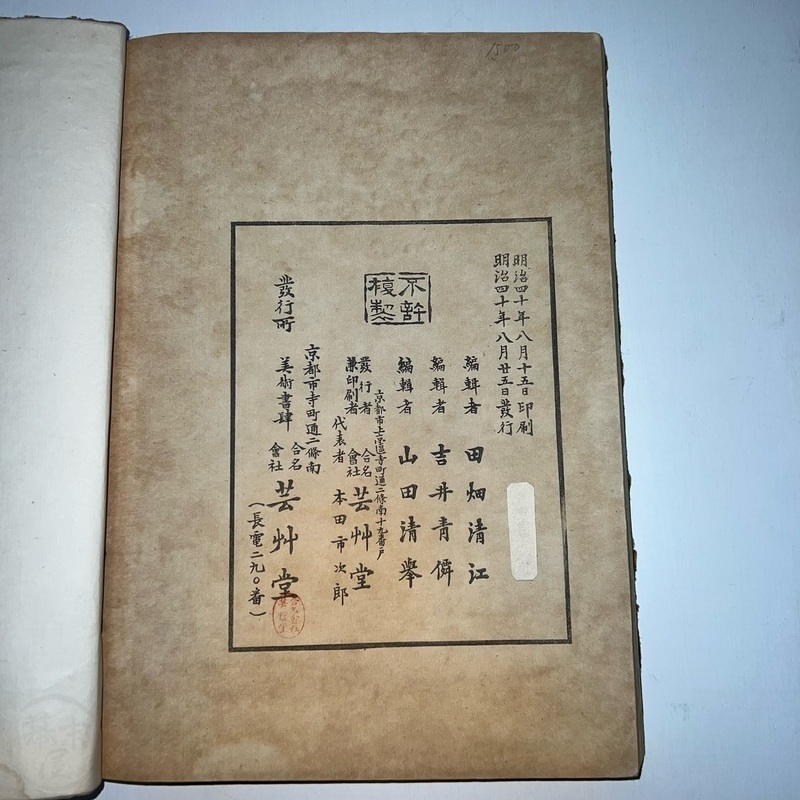 1500
明治四十年八月十五日印刷
明治四十年八月廿五日發行
不許
複製
編輯者 田畑清江
編輯者 吉井青儕
編輯者 山田清擧
京都市上京區寺町通二條南十九番戸
發行者
兼印刷者
合名
會社
芸艸堂
代表者 本田市次郎
發行所
京都市寺町通二條南
美術書肆
合名
會社
芸艸堂
（長電二九〇番）